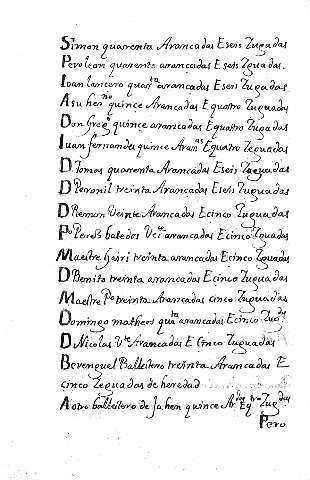 Simon quarenta Arancadas E seis Zugadas
Peroleon quarenta arancadas E seis Zguadas.
Ioan lancero quarta arancadas E seis Zugadas
A su herno quince Arancadas E quatro Zuguadas
Don Grego quince arancadas E quatro Zugadas
Iuan fernandez quince Aranas E quatro Zeguadas
D Tomas quarenta Arancadas E seis Zuguadas
D Peronil treinta Arancadas E seis Zuguadas
D Remon Veinte Arancadas E cinco Zuguadas
Po Peres baledos Vcte arancadas E cinco Zguadas
Maestre treinta arancadas E cinco Zguadas
D Benito treinta arancadas E cinco Zuguadas
Maestre Po treinta Arancadas cinco Zuguadas
Domingo mathers quata arancadas E cinco Zugds
D Nicolas Vte Arancadas E Cinco Zuguadas
Berenguel Ballestero treinta Arancadas E
cinco Zeguadas de heredad
A otro ballestero de Jahen quince Ardas Eq tro Zugdas
Pero